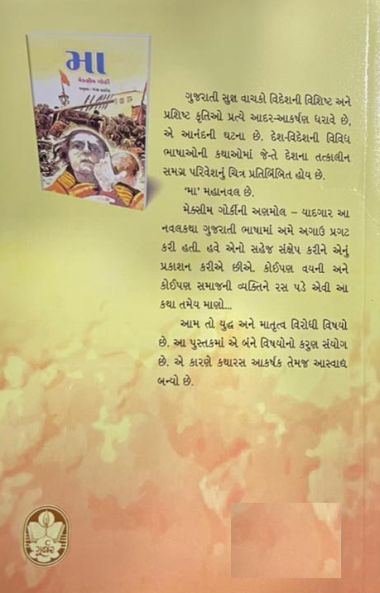 મા
મેક્સીમ ગોર્કી
ગુજરાતી સુજ્ઞ વાચકો વિદેશની વિશિષ્ટ અને
પ્રશિષ્ટ કૃતિઓ પ્રત્યે આદર-આકર્ષણ ધરાવે છે,
એ આનંદની ઘટના છે. દેશ-વિદેશની વિવિધ
ભાષાઓની કથાઓમાં જે-તે દેશના તત્કાલીન
સમગ્ર પરિવેશનું ચિત્ર પ્રતિબિંબિત હોય છે.
'મા' મહાનવલ છે.
મેક્સીમ ગોર્કીની અણમોલ – યાદગાર આ
નવલકથા ગુજરાતી ભાષામાં અમે અગાઉ પ્રગટ
કરી હતી. હવે એનો સહેજ સંક્ષેપ કરીને એનું
પ્રકાશન કરીએ છીએ. કોઈપણ વયની અને
કોઈપણ સમાજની વ્યક્તિને રસ પડે એવી આ
કથા તમેય માણો...
આમ તો યુદ્ધ અને માતૃત્વ વિરોધી વિષયો
છે. આ પુસ્તકમાં એ બંને વિષયોનો કરુણ સંયોગ
છે. એ કારણે કથારસ આકર્ષક તેમજ આસ્વાદ્ય
બન્યો છે.
ગૂર્જર